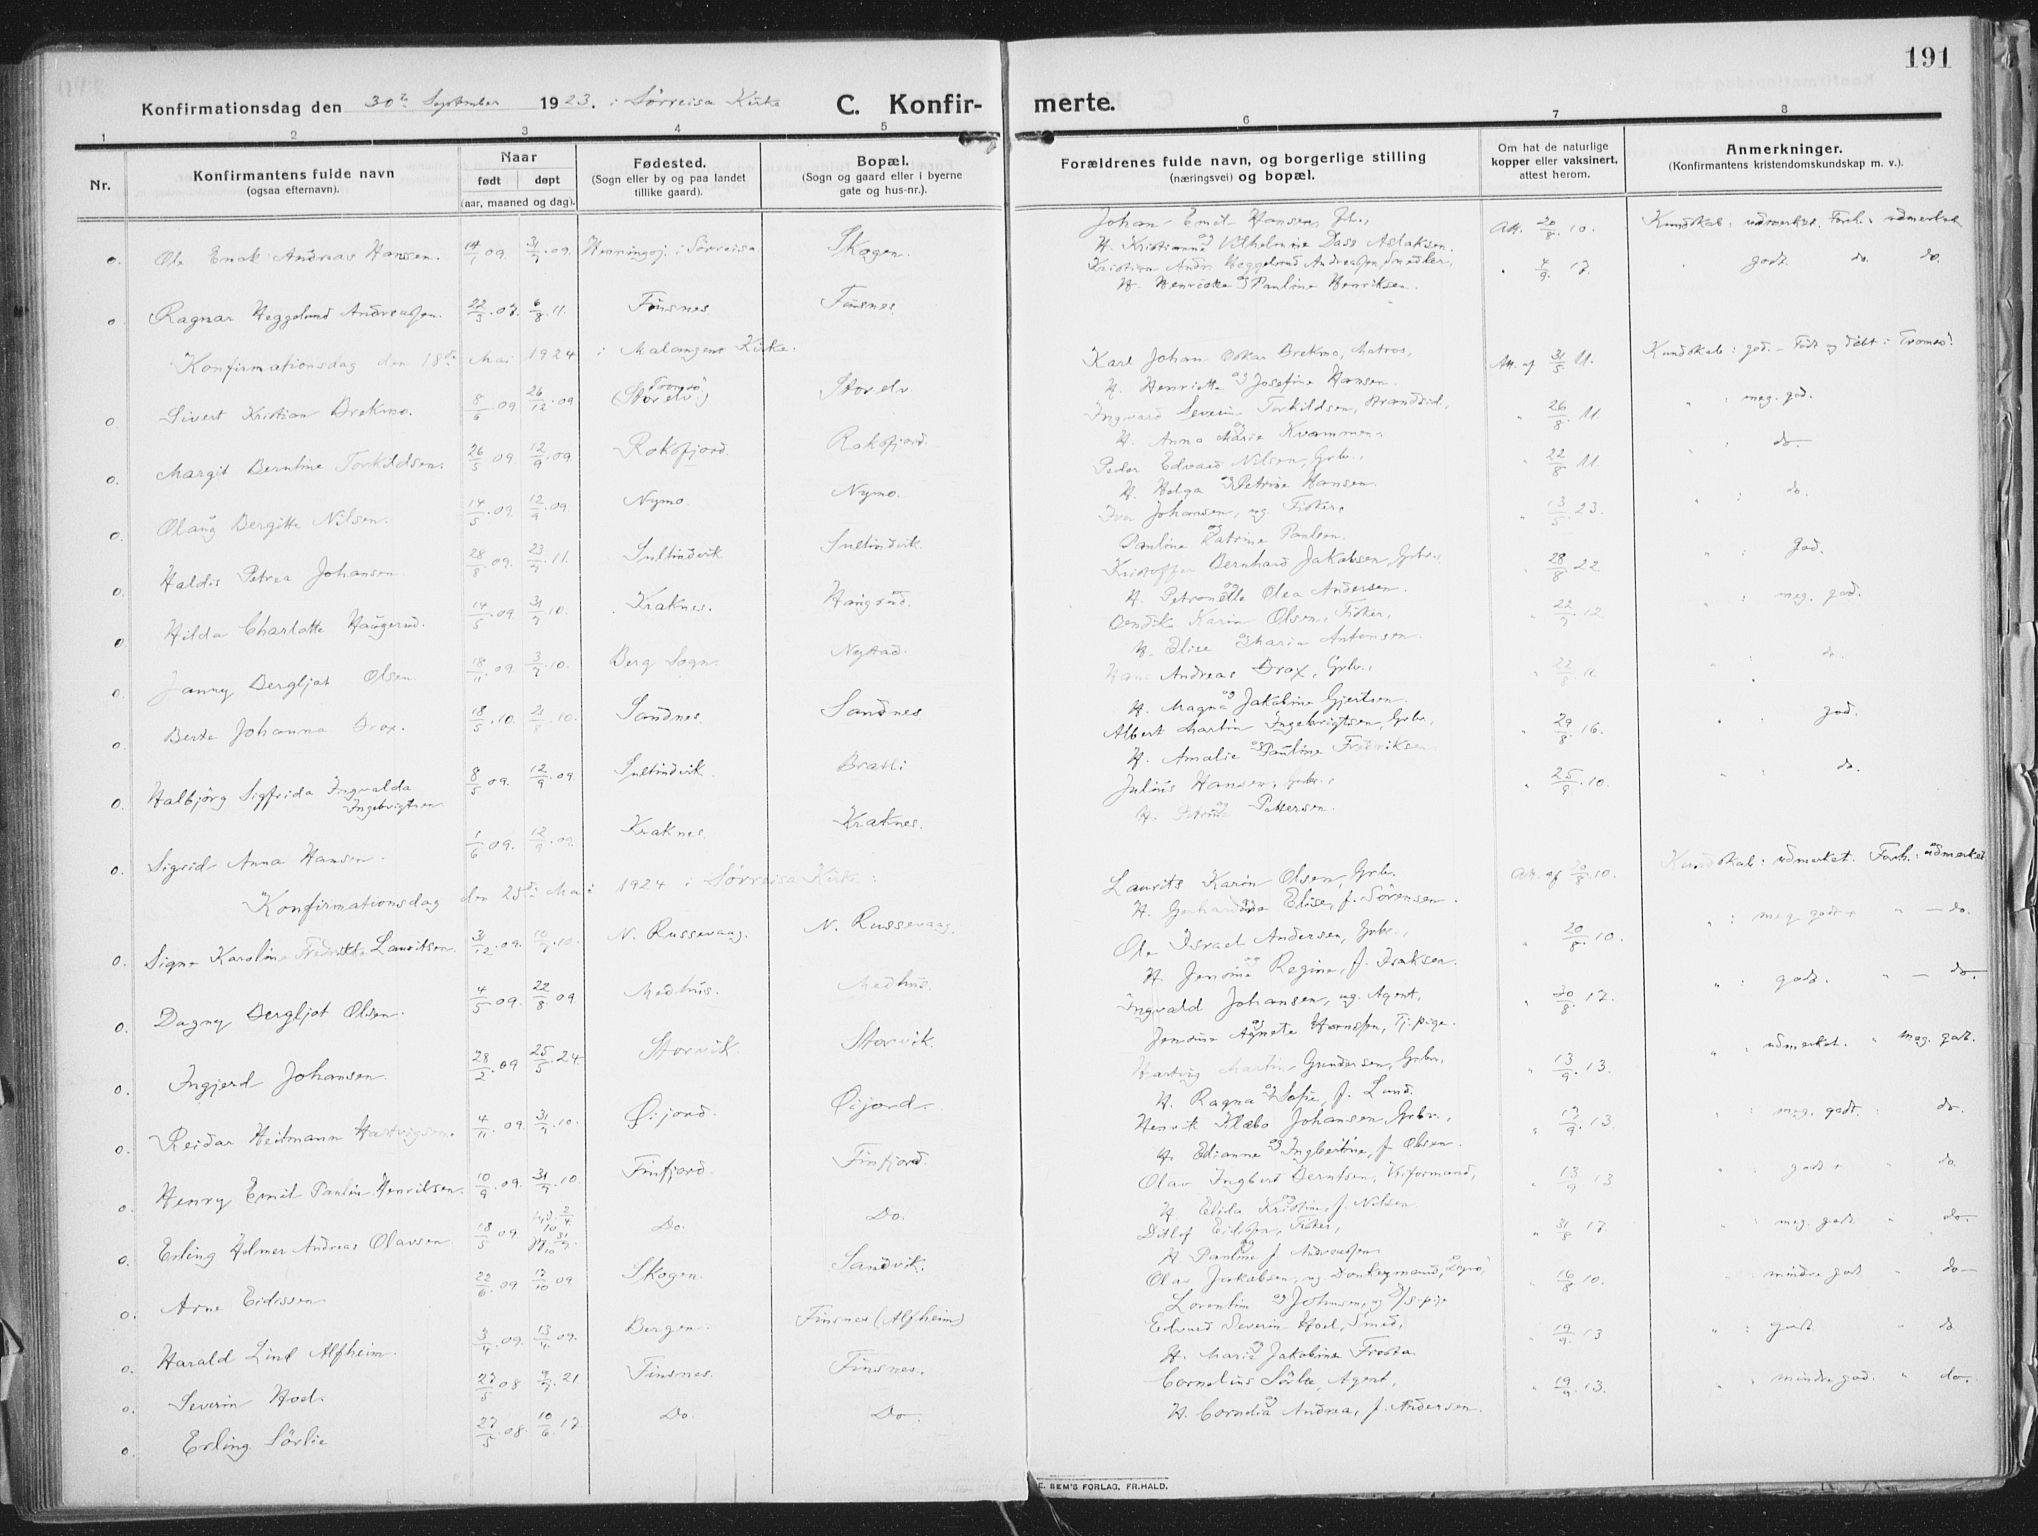 191
Konfirmationsdag den 30te September 1923. i Sørreisa Kirke C. Konfir- merte.
1 2 3 4 5 6 7 8
Nr. Konfirmantens fulde navn (ogsaa efternavn). Naar født døpt (aar, maaned og dag). Fødested. (Sogn eller by og paa landet tillike gaard). Bopæl. (Sogn og gaard eller i byerne gate og hus-nr.). Forældrenes fulde navn, og borgerlige stilling (næringsvei) og bopæl. Om hat de naturlige kopper eller vaksinert, attest herom. Anmerkninger. (Konfirmantens kristendomskundskap m. v.).
o. Ole Enok Andreas Hanssen. 14/1 09. 31/7 09. i Sørreisa Skogen. Johan Emil Hansen, Grbr., Att. 20/8. 10. Kundskab: udmerket. Forh.: udmerket
H. Kristianna og Vilhelmine Dass Aslaksen.
o Ragnar Heggelund Andreassen. 22/3. 07. 6/8. 11. Finsnes Finsnes Kristian Andr. Heggelund Andreassen, Smedker, " 4/9. 17. " godt do. do.
H. Henriette og Pauline Henriksen.
Konfirmationsdag den 18de Mai 1924 i Malangens Kirke.
o Sivert Kristian Brekmo. 8/6 09 26/12. 09 Tromsø (Storelv.) Storelv Karl Johan Oskar Brekmo, Matros, Att. af 31/5 11. Kundskab: god. - Født og døbt i Tromsø.
H. Henriette og Josefine Hansen.
o. Margit Berntine Torkildsen. 26/5 09 12/9. 09 Rokofjord. Rakofjord. Ingvard Severin Torkildsen, Strandsid., " 26/8. 11. " : meg. god.
H. Anna og Marie Kvammen.
o. Olaug Bergitte Nilsen. 14/5. 09. 12/9. 09. Nymo Nymo. Peder Edvard Nilsen, Grbr., " 22/8 11. " : do.
H. Helga og Petrine Hansen.
o. Haldis Petrea Johansen 28/8 09. 23/7. 11. Sultindvik Sultindvik. Ivar Johansen, ug. Fisker, " 13/5. 23. " : do.
Pauline og Katrine Paulsen.
o Hilda Charlotte Haugerud. 14/5. 09 31/7 10. Kraknes. Kristoffer Bernhard Jakobsen, Grbr., " 28/8 22 " : god.
H. Petronelle og Olea Andersen.
o. Janny Bergljot Olsen. 18/11 09 3/7. 10. Berg Sogn. Nystad. Karin Olsen, Fisker, " 22/7. 12 " : meg. god.
H. Elise og Maria Antonsen.
o Berte Johanna Brox. 18/5. 10. 21/8. 10. Sandnes. Sandnes Hans Andreas Brox, Grbr., " 22/8. 11 " : do.
H. Magna og Jakobine Gjertsen.
o. Halbjørg Sigfrida Ingvalda Ingebrigtsen 8/5 09. 12/9. 09. Sultindvik. Bratli Albert Martin Ingebrigtsen, Grbr., " 29/8. 16. " : god.
H. Amalie og Pauline Fredriksen
o. Sigrid Anna Hansen. 1/6 09. 12/9. 09. Kraknes. Kraknes. Julius Hansen, Grbr., " 25/9. 10. " : do.
H. Petrine og Pettersen.
Konfirmationsdag den 25de Mai 1924 i Sørreisa Kirke:
o. Signe Karoline Fredrikke Lauritsen. 31/12. 09. 10/7. 10. N. Russevaag. N. Russevaag. Laurits Karon Olsen, Grbr. Att. af 20/8. 10. Kundskab: udmerket. Forh.: udmerket
H. Gerhardine og Elise, f. Sørensen.
o. Dagny Bergljot Olsen. 4/5. 09. 22/8 09. Medhus. Medhus. Ole Israel Andersen, Grbr., " 20/8. 10. " : meg godt " - do.
H. Jensine og Regine, f. Isaksen.
o. Ingjerd Johansen. 28/2. 09 25/5. 24. Storvik Storvik. Ingvald Johansen, ug. Agent, " 30/8. 17. " : godt. " - do.
Jensine og Agnete Hanssen, Tj.pige.
o. Reidar Heitmann Hartvigsen. 4/11. 09. 31/7. 10. Øijord. Øijord. Hartvig Martin Gundersen, Grbr., " 13/9. 13. " : udmerket. " meg. godt.
H. Ragna og Sofie, f. Lund.
o. Henry Emil Paulin Henriksen. 10/9. 09. 31/7. 10 Finfjord. Finfjord. Henrik Klæbo Johansen, Grbr., " 17/9. 13. " : meg. godt. " do.
H. Edianna og Ingbertine, f. Olsen.
o. Erling Helmer Andreas Olavsen 18/5 09 Do. Do. Olav Ingbert Berntsen, Veiformand, " 13/9. 13 " : godt " do.
H. Elida og Kristine, f. Nilsen
o. Arne Eidissen 22/6. 09 17/10 09 Skogen. Sandvik. Ditlef Eidissen, Fisker, " 31/8 17. " : meg. godt " do.
H. Pauline og f. Andreassen
o. Harald Lind Alfheim. 3/4. 09. 13/4. 09. Bergen. Finsnes (Alfheim) Olav Jakobsen, ug. Donkeymand, og " 16/8 10. " mindre godt " do-
Lorentin og Johnsen, ug
o. Severin Hoel. 27/5 08 9/7. 21 Finsnes. Finsnes. Edvard Severin Hoel, Smed, " 19/9. 13 " : godt. " do
H. Marie og Jakobine Frosta.
o. Erling Sørlie 27/5. 08 10/6. 17 Do. Do. Cornelius Sørlie, Agent, " 19/9. 13. " : mindre god. " do.
H. Cornelia og Andrea, f. Andersen.
E. SEM'S FORLAG, FR.HALD.